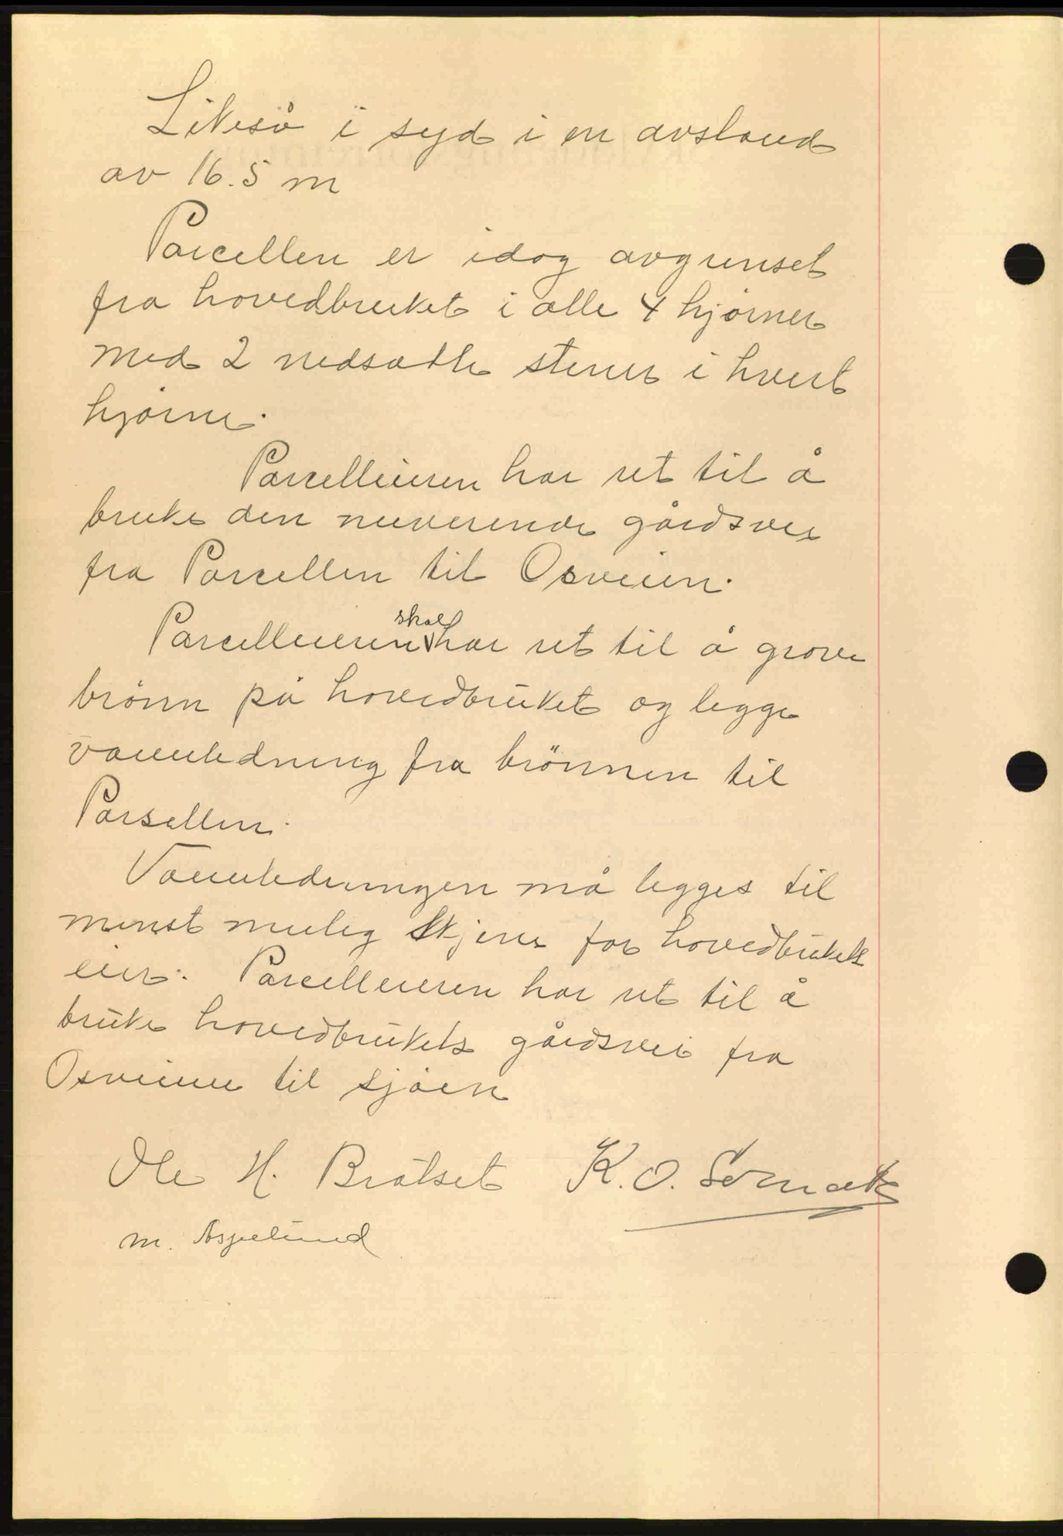 Likesö i syd i en avstand
av 16.5 m
Parcellen er idag avgrenset
fra hovedbruket i alle 4 hjörner
med 2 nedsatte stener i hvert
hjörne.
Parcelleieren har ret til å
bruke den nuverende gårdsvei
fra Parcellen til Osveien.
skal
Parcelleieren har ret til å grave
brönn på hovedbruket og legge
vannledning fra brönnen til
Parsellen.
Vannledningen må legges til
minst mulig skjene for hovedbrukets
eier. Parcelleieren har ret til å
bruke hovedbrukets gårdsvei fra
Osveien til sjöen
Ole H. Bratset K. O.
M. Aspelund